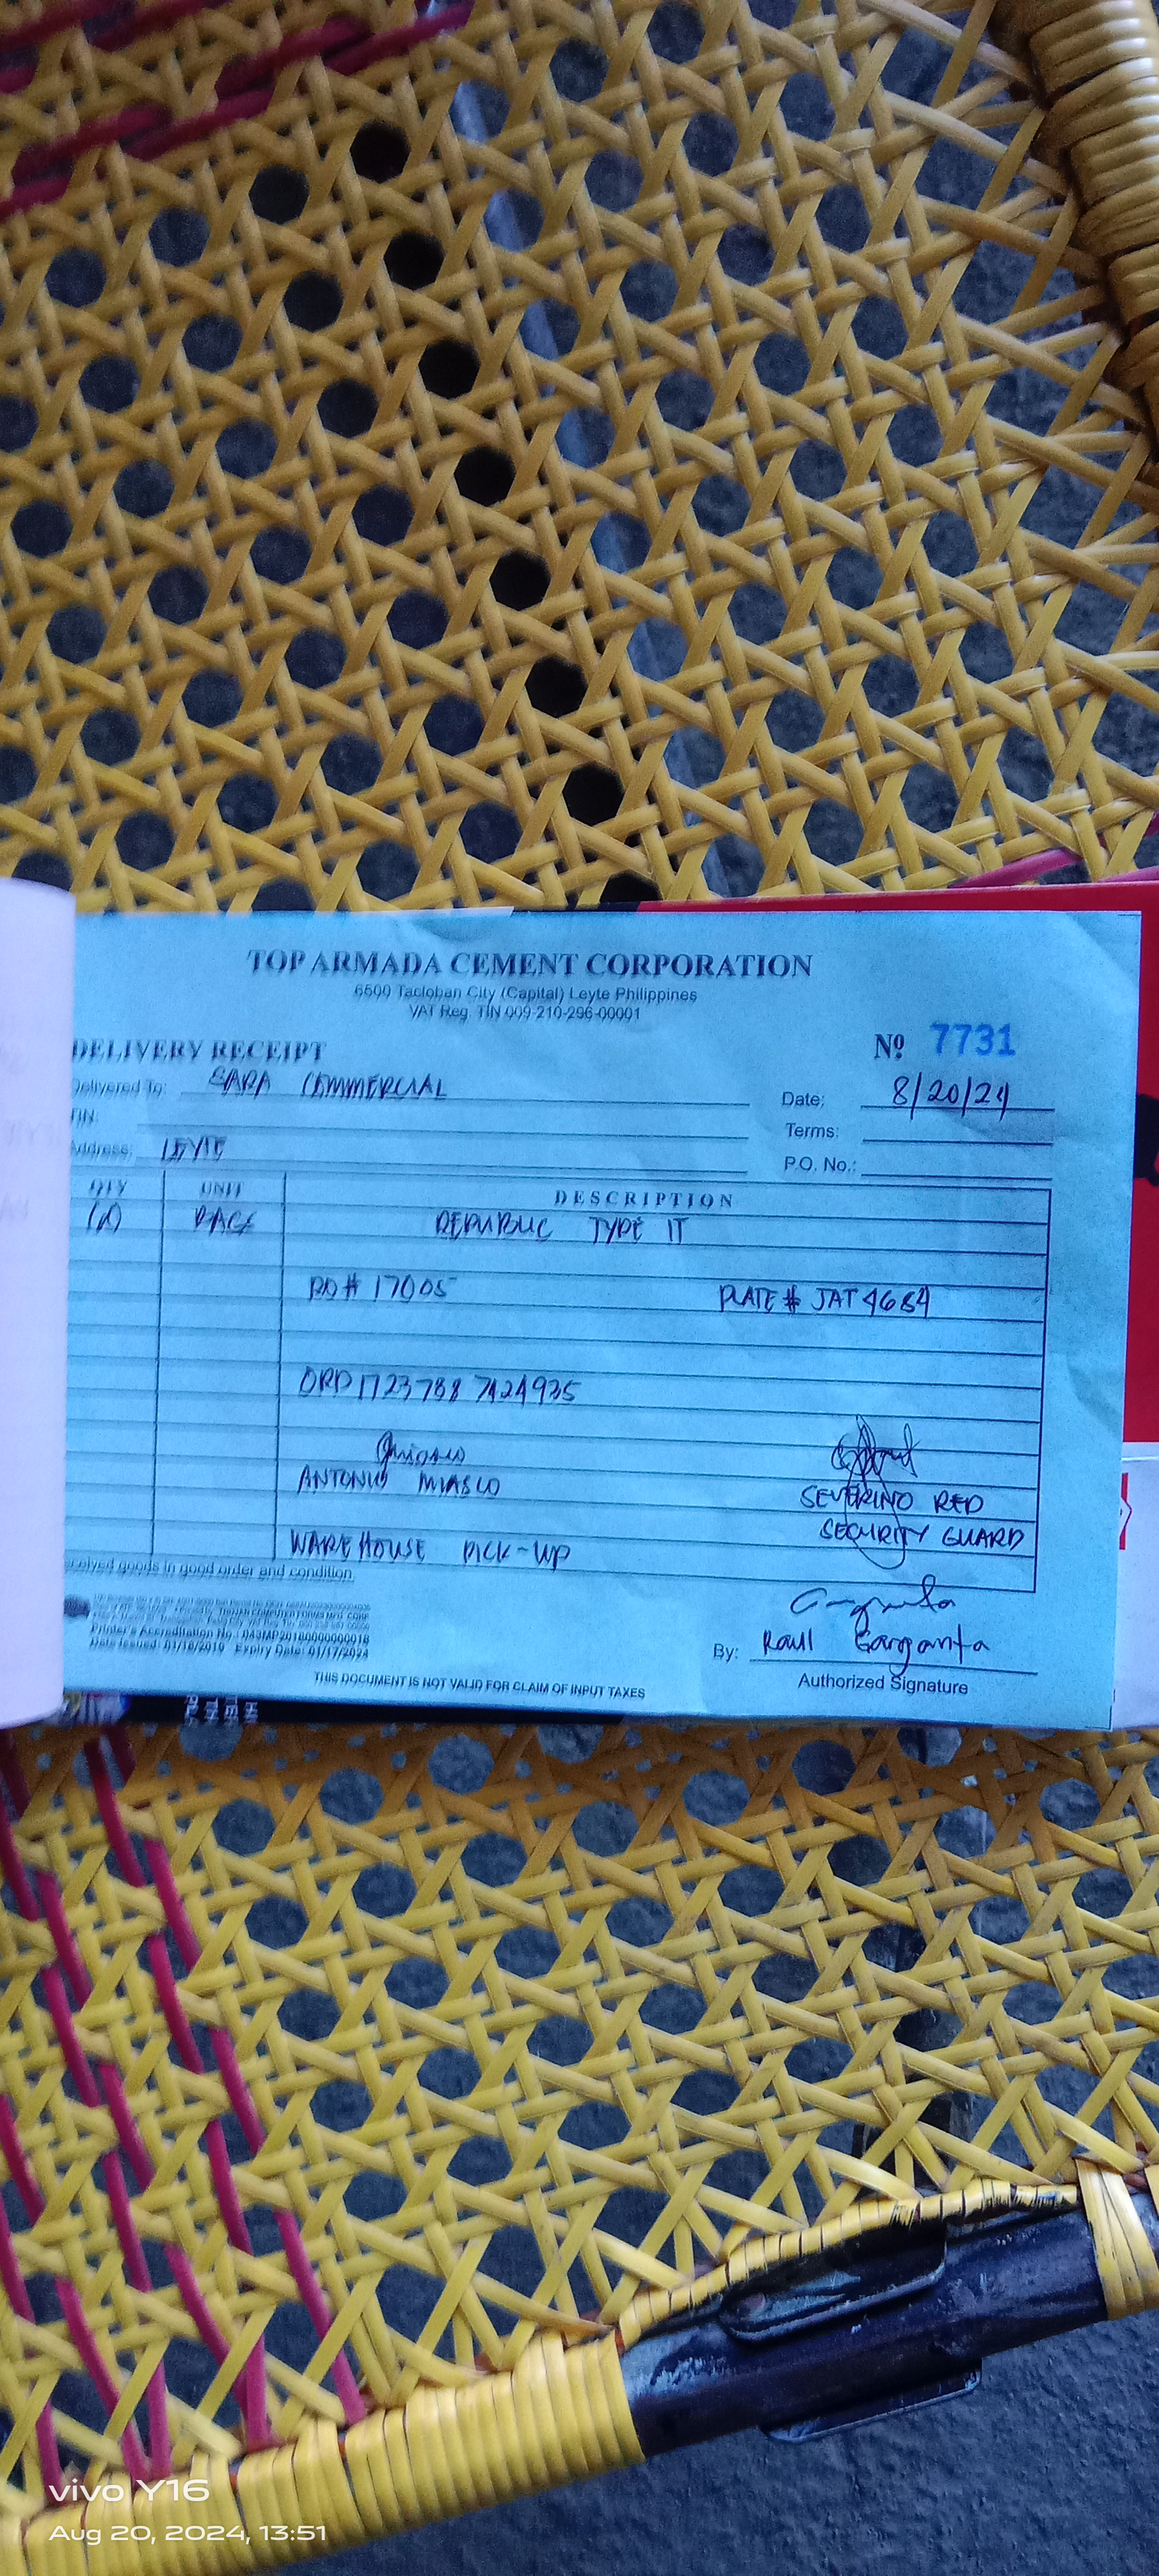 TOP ARMADA CEMENT CORPORATION
6500 Tacloban City (Capital) Leyte Philippines
VAT Reg. TIN 009-210-296-00001
DELIVERY RECEIPT
Nº 7731
Delivered To: SARA COMMERCIAL
Date: 8/20/24
TIN:
Terms:
Address: LEYTE
P.O. No.:
QTY UNIT DESCRIPTION
BAGS REPUBLIC TYPE IT
# 17005 PLATE # JAT 4684
ANTONIO MIASCO
SEVERINO RED
SECURITY GUARD
WAREHOUSE PICK-UP
goods in good order and condition.
Date Issued: 01/18/2019 Expiry Date: 01/17/2024
By: Raul Garganta
Authorized Signature
THIS DOCUMENT IS NOT VALID FOR CLAIM OF INPUT TAXES
vivo Y16
Aug 20, 2024, 13:51